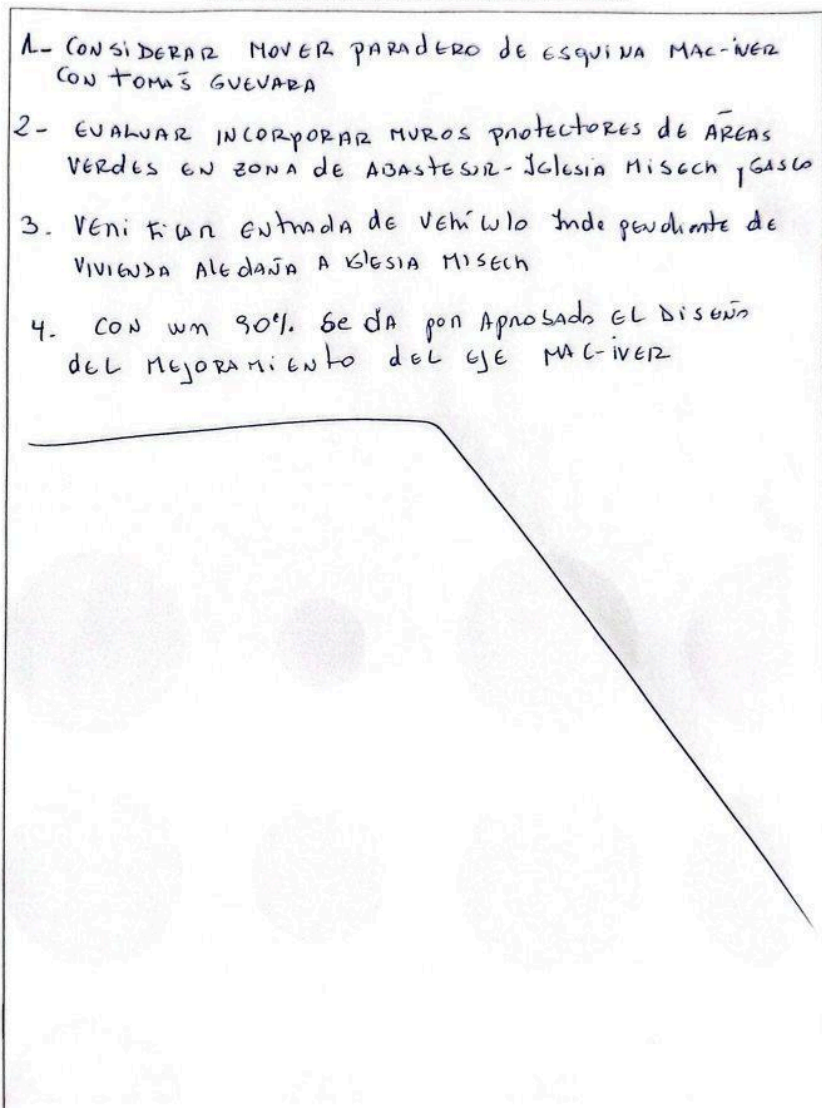 1- CONSIDERAR MOVER PARADERO DE ESQUINA MAC-IVER
CON TOMÁS GUEVARA
2- EVALUAR INCORPORAR MUROS PROTECTORES DE ÁREAS
VERDES EN ZONA DE ABASTESUR-IGLESIA MISECH y GASCO
3. VERIFICAR ENTRADA DE VEHÍCULO INDEPENDIENTE DE
VIVIENDA ALEDAÑA A IGLESIA MISECH
4. CON UN 90% SE DA POR APROBADO EL DISEÑO
DEL MEJORAMIENTO DEL EJE MAC-IVER